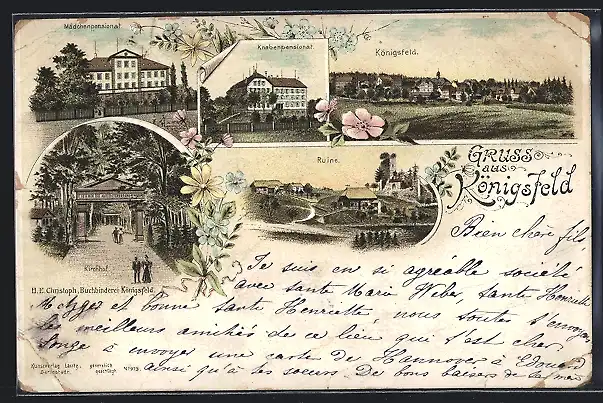 Mädchenpensionat.
Knabenpensionat.
Königsfeld.
Gruss
aus
Königsfeld
Ruine.
Kirchhof.
H. E. Christoph, Buchbinderei Königsfeld.
Kunstverlag Lautz, Darmstadt. gesetzlich geschützt No 919.
Bien chère fils
Je suis en si agréable société
avec tante Marie Weber, tante Henriette
Metzger et bonne tante Henriette nous toutes t'envoyons
les meilleurs amitiés de ce lieu qui t'est cher,
Songe à envoyer une carte de Hannover à Edouard
ainsi qu'à tes soeurs. De bons baisers de ta mère